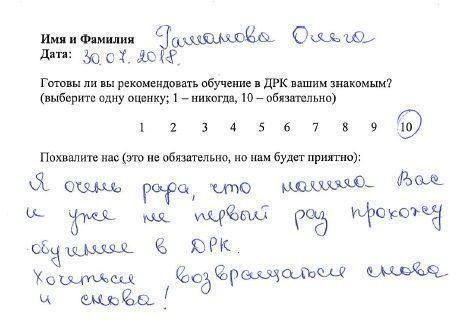 Имя и Фамилия Рашанова Ольга
Дата: 30.07.2018.
Готовы ли вы рекомендовать обучение в ДРК вашим знакомым?
(выберите одну оценку; 1 – никогда, 10 – обязательно)
1 2 3 4 5 6 7 8 9 10
Похвалите нас (это не обязательно, но нам будет приятно):
Я очень рада, что нашла Вас
и уже не первый раз прохожу
обучение в ДРК.
Хочеться возвращаться снова
и снова!